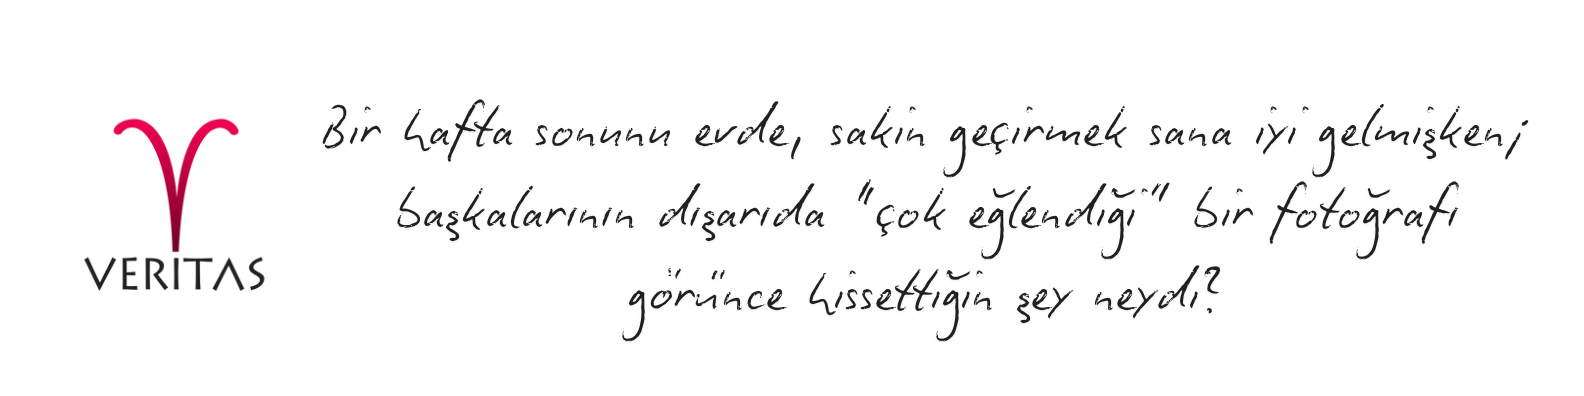 Bir hafta sonunu evde, sakin geçirmek sana iyi gelmişken;
başkalarının dışarıda "çok eğlendiği" bir fotoğrafı
görünce hissettiğin şey neydi?
VERİTAS